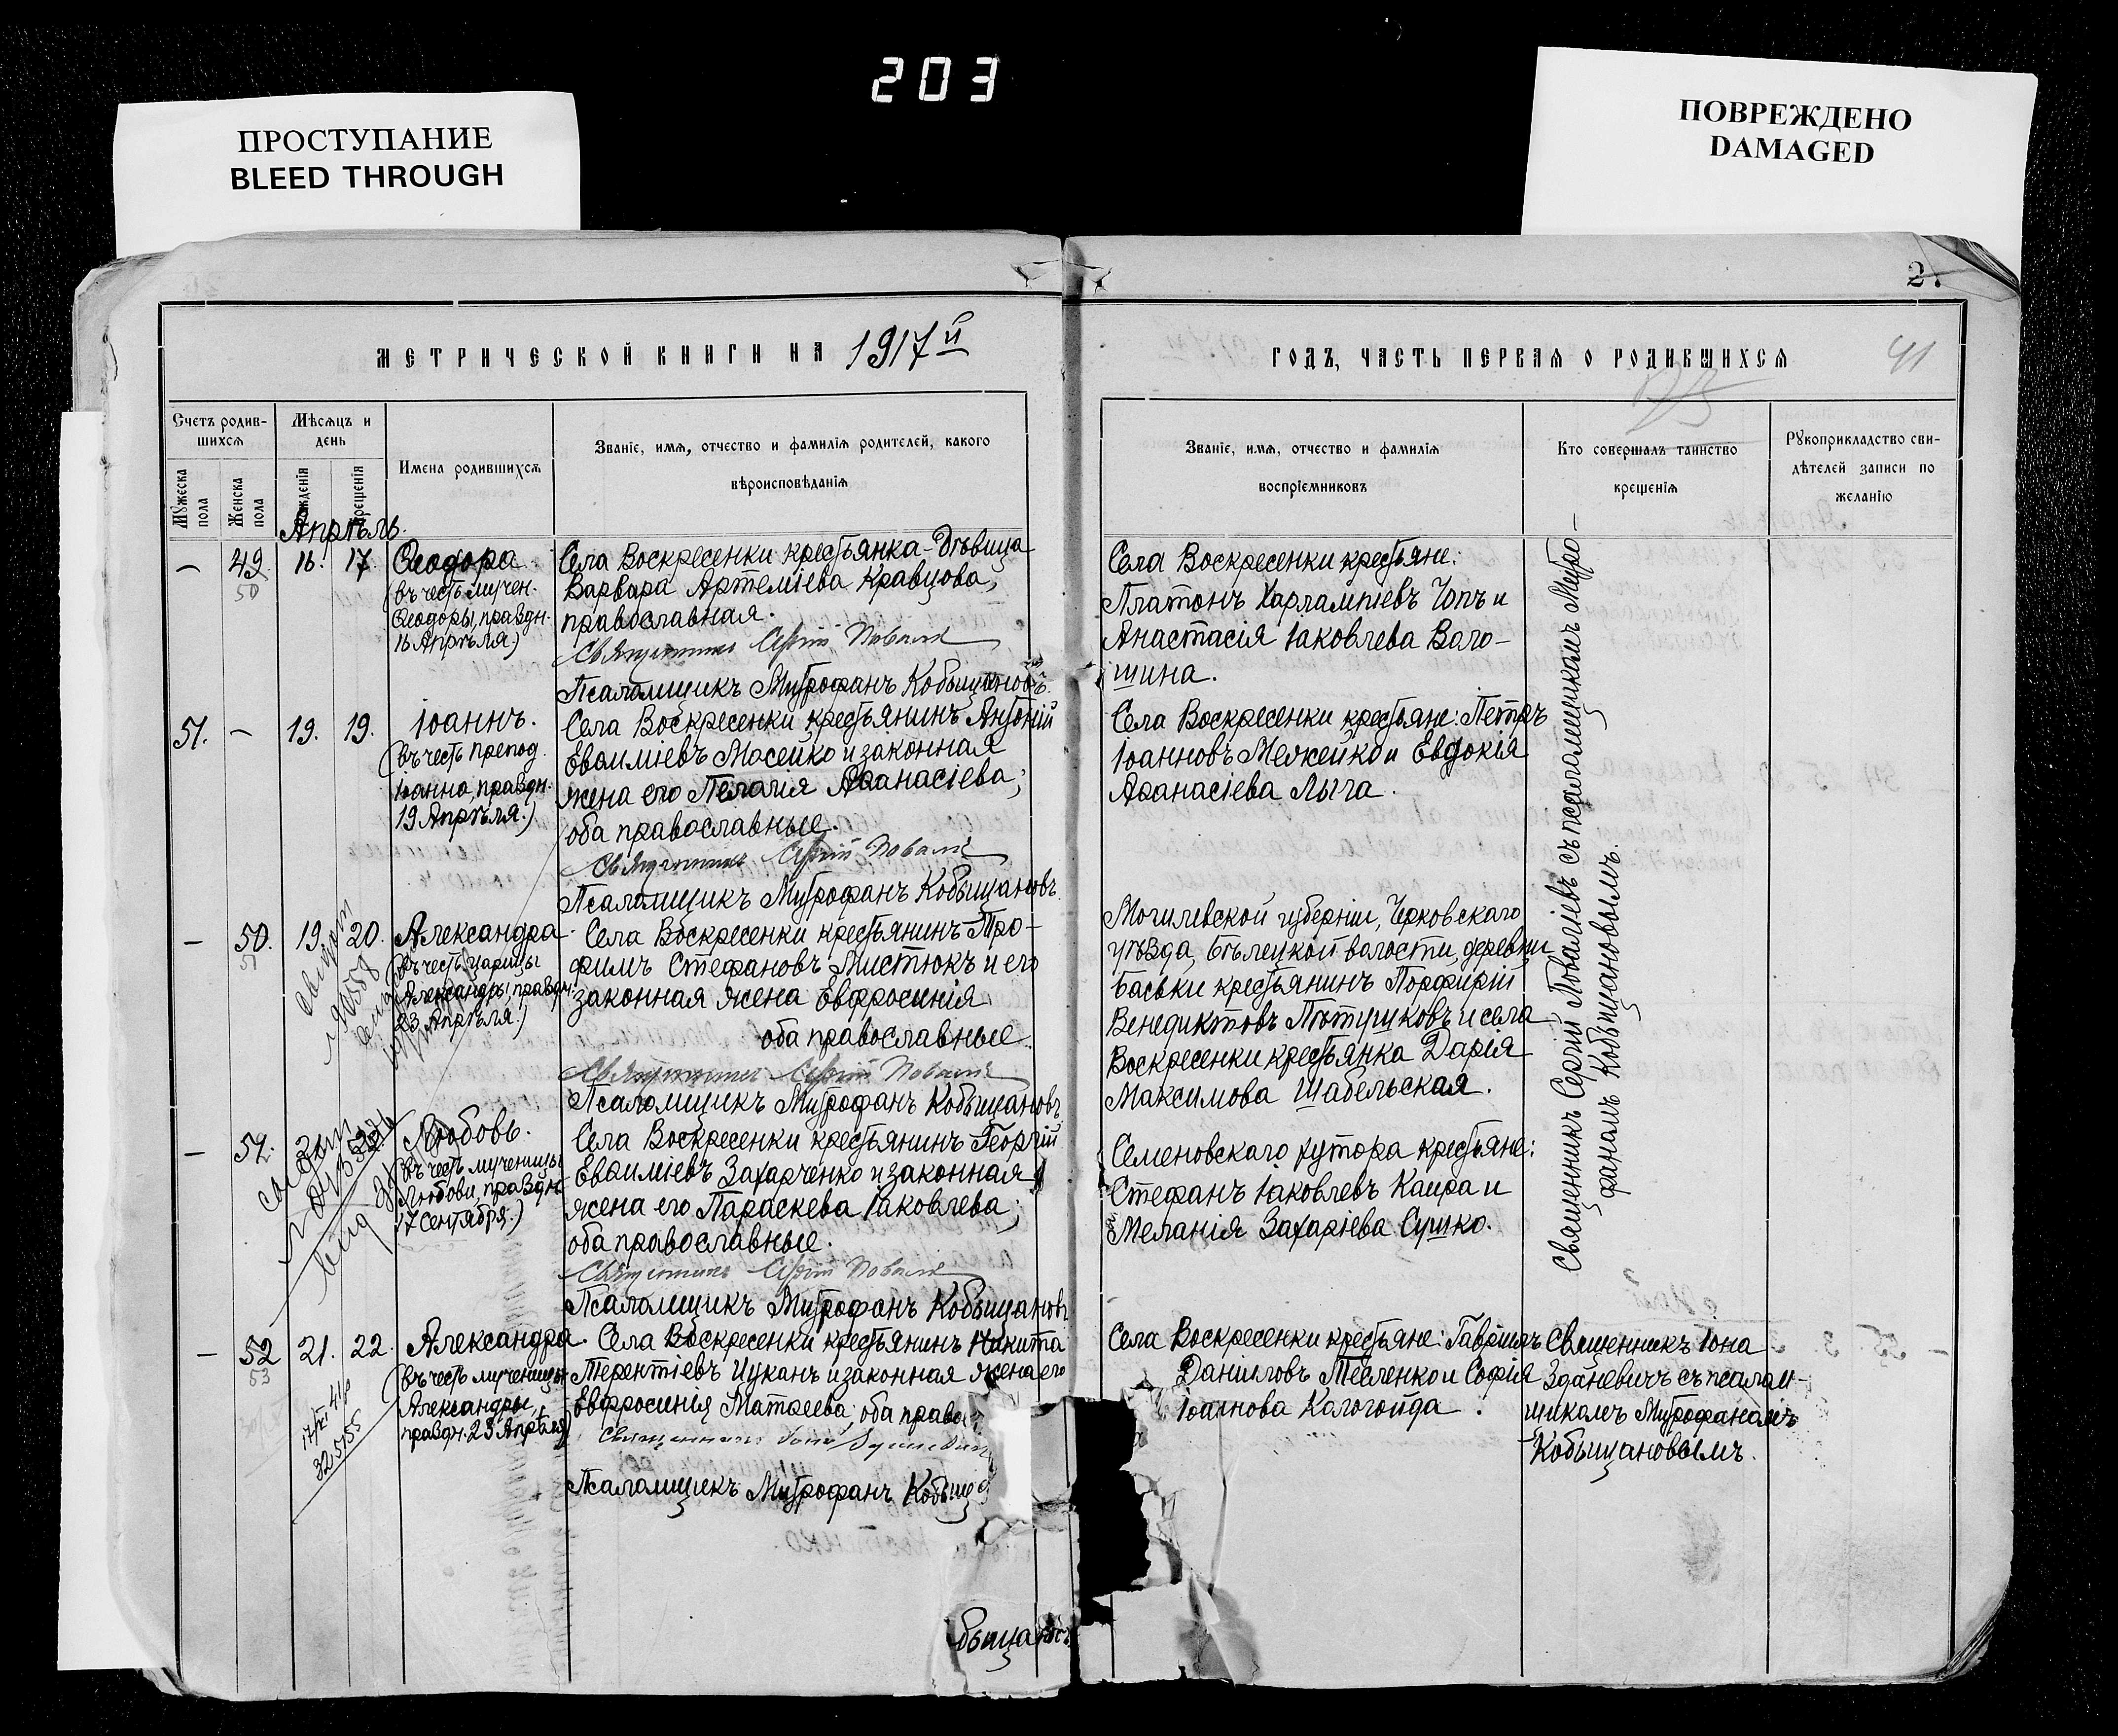 203
ПРОСТУПАНИЕ
BLEED THROUGH
ПОВРЕЖДЕНО
DAMAGED
МЕТРИЧЕСКОЙ КНИГИ НА 1917й
ГОДЪ, ЧАСТЬ ПЕРВАЯ О РОДИВШИХСЯ
41
Счетъ родив-
шихся
Мужеска
пола
Женска
пола
Мѣсяцъ и
день
Рожденія
Крещенія
Имена родившихся
Званіе, имя, отчество и фамилія родителей, какого
вѣроисповѣданія
Званіе, имя, отчество и фамилія
воспріемниковъ
Кто совершалъ таинство
крещенія
Рукоприкладство сви-
дѣтелей записи по
желанію
Апрѣль.
– 49 16. 17. Ѳеодора
50
(въ честь мучен.
Ѳеодоры, праздн.
16 Апрѣля)
Села Воскресенки крестьянка-дѣвица
Варвара Артеміева Кравцова,
православная.
Священникъ Сергій Повалій
Псаломщикъ Митрофанъ Кобыщановъ.
Села Воскресенки крестьяне:
Платонъ Харлампіевъ Чопъ и
Анастасія Іаковлева Воло-
шина.
Священникъ Сергій Поваліевъ съ псаломщикомъ Митро-
фаномъ Кобыщановымъ.
51. – 19. 19. Іоаннъ.
(въ честь препод.
Іоанна, праздн.
19 Апрѣля.)
Села Воскресенки крестьянинъ Антоній
Евѳиміевъ Мосейко и законная
жена его Пелагія Аѳанасіева;
оба православные.
Священникъ Сергій Повалій
Псаломщикъ Митрофанъ Кобыщановъ.
Села Воскресенки крестьяне: Петръ
Іоанновъ Межейко и Евдокія
Аѳанасіева Лыга.
– 50. 19. 20. Александра
51
(въ честь царицы
Александры, праздн.
23 Апрѣля.)
Села Воскресенки крестьянинъ Тро-
фимъ Стефановъ Мистюкъ и его
законная жена Евфросинія
оба православные.
Священникъ Сергій Повалій
Псаломщикъ Митрофанъ Кобыщановъ
Могилевской губерніи, Чериковскаго
уѣзда, Бѣлецкой волости, деревни
Баевки крестьянинъ Порфирій
Венедиктовъ и села
Воскресенки крестьянка Дарія
Максимова Шабельская.
– Любовь.
(въ честь мученицы
Любови, праздн.
17 Сентября.)
Села Воскресенки крестьянинъ Георгій
Евѳиміевъ Захарченко и законная
жена его Параскева Іаковлева;
оба православные.
Священникъ Сергій Повалій
Псаломщикъ Митрофанъ Кобыщановъ
Семеновскаго хутора крестьяне:
Стефанъ Іаковлевъ Каира и
Меланія Захаріева Сушко.
– 52 21. 22. Александра.
53
(въ честь мученицы
Александры,
праздн. 23 Апрѣля)
325155
Села Воскресенки крестьянинъ Никита
Терентіевъ Цуканъ и законная жена его
Евфросинія Матѳеева; оба право
Священникъ Іона Зданевичъ
Псаломщикъ Митрофанъ Кобыщ
быщановъ
Села Воскресенки крестьяне: Гавріилъ
Даніиловъ Тесленко и Софія
Іоаннова Кологойда.
Священникъ Іона
Зданевичъ съ псалом-
щикомъ Митрофаномъ
Кобыщановымъ.